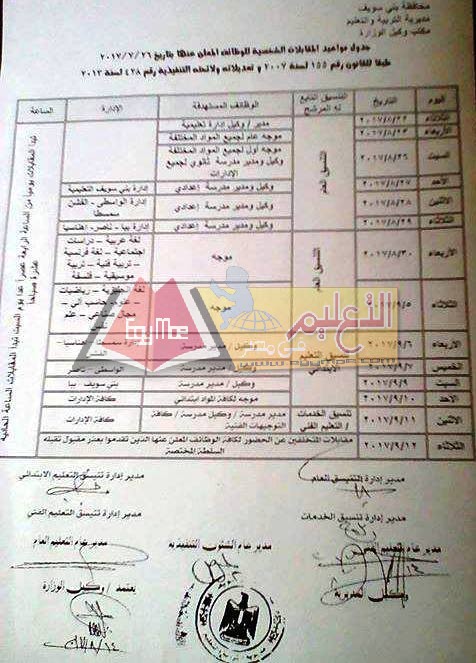 محافظة بني سويف
مديرية التربية والتعليم
مكتب وكيل الوزارة
جدول مواعيد المقابلات الشخصية للوظائف المعلن عنها بتاريخ ٢٠١٧/٧/٢٦
طبقا للقانون رقم ١٥٥ لسنة ٢٠٠٧ و تعديلاته ولائحته التنفيذية رقم ٤٢٨ لسنة ٢٠١٣
اليوم التاريخ التنسيق التابع له المرشح الوظائف المستهدفة الإدارة الساعة
الثلاثاء ٢٠١٧/٨/٢٢ مدير / وكيل إدارة تعليمية
الأربعاء ٢٠١٧/٨/٢٣ موجه عام لجميع المواد المختلفة
السبت ٢٠١٧/٨/٢٦ موجه أول لجميع المواد المختلفة
وكيل ومدير مدرسة ثانوي لجميع الإدارات
التنسيق العام
الأحد ٢٠١٧/٨/٢٧ وكيل ومدير مدرسة إعدادي إدارة بني سويف التعليمية
الاثنين ٢٠١٧/٨/٢٨ وكيل ومدير مدرسة إعدادي إدارة الواسطى - الفشن
سمسطا
الثلاثاء ٢٠١٧/٨/٢٩ وكيل ومدير مدرسة إعدادي إدارة ببا - ناصر - إهناسيا
الأربعاء ٢٠١٧/٨/٣٠ التنسيق العام موجه لغة عربية - دراسات
اجتماعية - لغة فرنسية
- تربية فنية - تربية
موسيقية - فلسفة
الثلاثاء ٢٠١٧/٩/٥ موجه لغة إنجليزية - رياضيات
مجال صناعي - علم
الأربعاء ٢٠١٧/٩/٦ وكيل / مدير مدرسة إدارة سمسطا - إهناسيا -
الفشن
تنسيق التعليم الابتدائي
الخميس ٢٠١٧/٩/٧ وكيل / مدير مدرسة الواسطى - ناصر
السبت ٢٠١٧/٩/٩ وكيل / مدير مدرسة بني سويف - ببا
الأحد ٢٠١٧/٩/١٠ موجه لكافة المواد ابتدائي كافة الإدارات
الاثنين ٢٠١٧/٩/١١ تنسيق الخدمات / التعليم الفني مدير مدرسة / وكيل مدرسة / كافة التوجيهات الفنية كافة الإدارات
الثلاثاء ٢٠١٧/٩/١٢ مقابلات المتخلفين عن الحضور لكافة الوظائف المعلن عنها الذين تقدموا بعذر مقبول تقبله
السلطة المختصة
تبدأ المقابلات يوميا من الساعة الرابعة عصرا عدا يوم السبت تبدأ المقابلات الساعة الحادية عشرة صباحا
EgyMoe
التعليم
في مصر
مدير إدارة التنسيق العام
مدير إدارة تنسيق التعليم الابتدائي
مدير إدارة تنسيق الخدمات
مدير إدارة تنسيق التعليم الفني
مدير عام التعليم الفني
مدير عام الشئون التنفيذية
مدير عام التعليم العام
وكيل المديرية
يعتمد / وكيل الوزارة